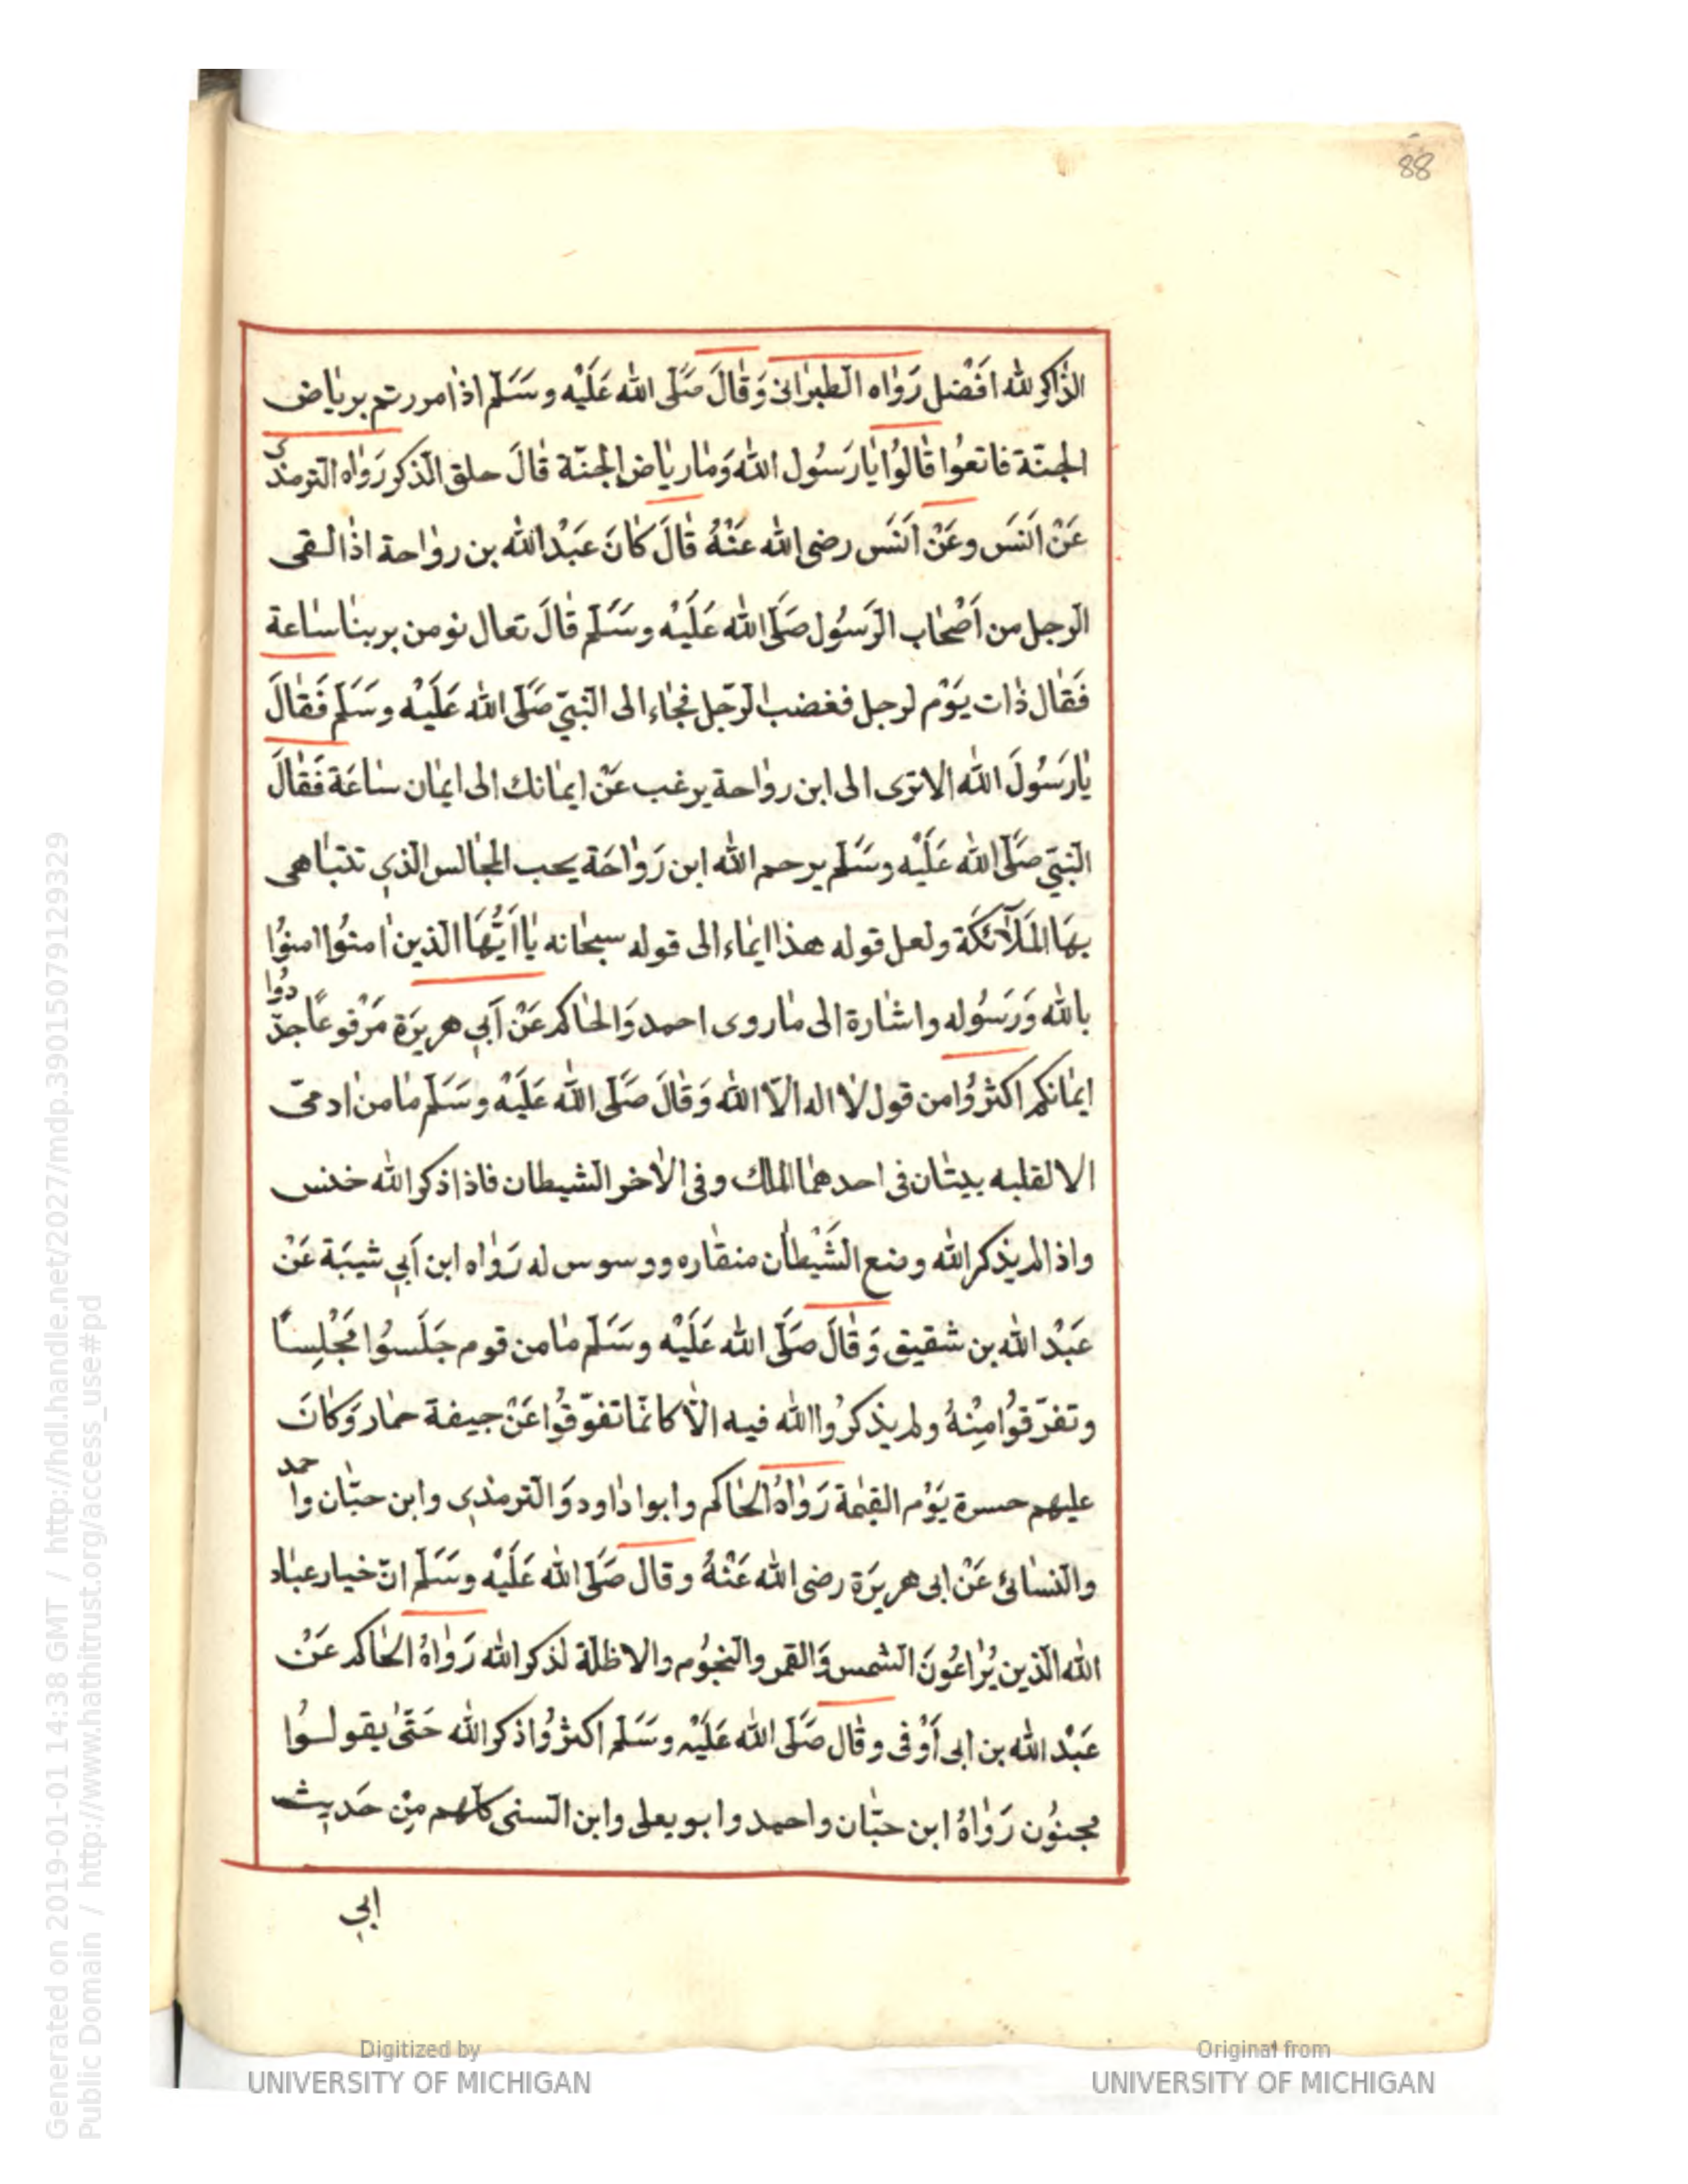 88
الذاكر لله افضل رواه الطبرانى وقال صلى الله عليه وسلم اذا مررتم برياض
الجنة فاتعوا قالوا يا رسول الله وما رياض الجنة قال حلق الذكر رواه الترمذى
عن انس وعن انس رضى الله عنه قال كان عبد الله بن رواحة اذا لقى
الرجل من اصحاب الرسول صلى الله عليه وسلم قال تعال نومن بربنا ساعة
فقال ذات يوم لرجل فغضب الرجل فجاء الى النبي صلى الله عليه وسلم فقال
يا رسول الله الا ترى الى ابن رواحة يرغب عن ايمانك الى ايمان ساعة فقال
النبي صلى الله عليه وسلم يرحم الله ابن رواحة يحب المجالس الذي تتباهى
بها الملائكة ولعل قوله هذا ايماء الى قوله سبحانه يا ايها الذين امنوا امنوا
بالله ورسوله واشارة الى ما روى احمد والحاكم عن ابي هريرة مرفوعا جددوا
ايمانكم اكثروا من قول لا اله الا الله وقال صلى الله عليه وسلم ما من ادمى
الا لقلبه بيتان فى احدهما الملك وفى الاخر الشيطان فاذا ذكر الله خنس
واذا لم يذكر الله وضع الشيطان منقاره ووسوس له رواه ابن ابي شيبة عن
عبد الله بن شقيق وقال صلى الله عليه وسلم ما من قوم جلسوا مجلسا
وتفرقوا منه ولم يذكروا الله فيه الا كانما تفوقوا عن جيفة حمار وكان
عليهم حسرة يوم القيمة رواه الحاكم وابوا داود والترمذي وابن حبان واحمد
والنسائى عن ابى هريرة رضى الله عنه وقال صلى الله عليه وسلم ان خيار عباد
الله الذين يراعون الشمس والقمر والنجوم والاظلة لذكر الله رواه الحاكم عن
عبد الله بن ابى أوفى وقال صلى الله عليه وسلم اكثروا ذكر الله حتى يقولوا
مجنون رواه ابن حبان واحمد وابو يعلى وابن السنى كلهم من حديث
ابي
Generated on 2019-01-01 14:38 GMT / http://hdl.handle.net/2027/mdp.39015079129329
Public Domain / http://www.hathitrust.org/access_use#pd
Digitized by
UNIVERSITY OF MICHIGAN
Original from
UNIVERSITY OF MICHIGAN